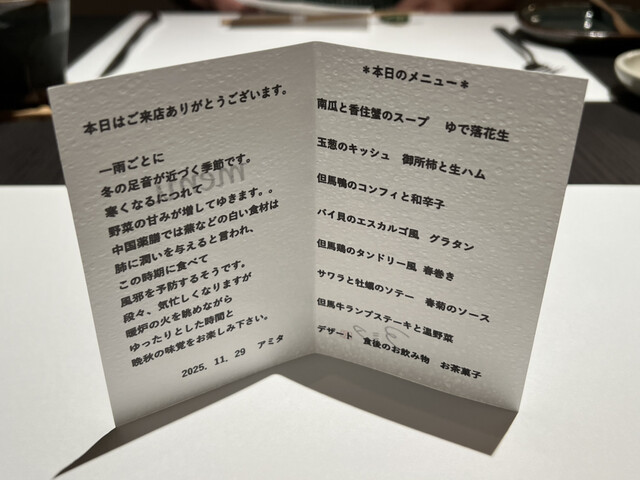 本日はご来店ありがとうございます。
一雨ごとに
冬の足音が近づく季節です。
寒くなるにつれて
野菜の甘みが増してゆきます。。
中国薬膳では蕪などの白い食材は
肺に潤いを与えると言われ、
この時期に食べて
風邪を予防するそうです。
段々、気忙しくなりますが
暖炉の火を眺めながら
ゆったりとした時間と
晩秋の味覚をお楽しみ下さい。
2025. 11. 29 アミタ
＊本日のメニュー＊
南瓜と香住蟹のスープ ゆで落花生
玉葱のキッシュ 御所柿と生ハム
但馬鴨のコンフィと和辛子
バイ貝のエスカルゴ風 グラタン
但馬鶏のタンドリー風 春巻き
サワラと牡蠣のソテー 春菊のソース
但馬牛ランプステーキと温野菜
デザート 食後のお飲み物 お茶菓子